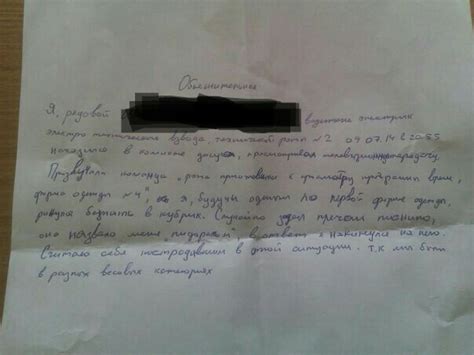 Объяснительное
Я, рядовой водитель электрик
электро технического взвода, технической роты №2 09.07.14 в 20.55
находился в комнате досуга, просматривал телевизионную передачу
Прозвучала команда "рота приготовиться к просмотру программы время,
форма одежды №4", я, будучи одетым по первой форме одежды,
ринулся бежать в кубрик. Случайно задел плечом пианино,
оно назвало меня "пидаром", в ответ я накинулся на него.
Считаю себя пострадавшим в этой ситуации. т.к мы были
в разных весовых категориях